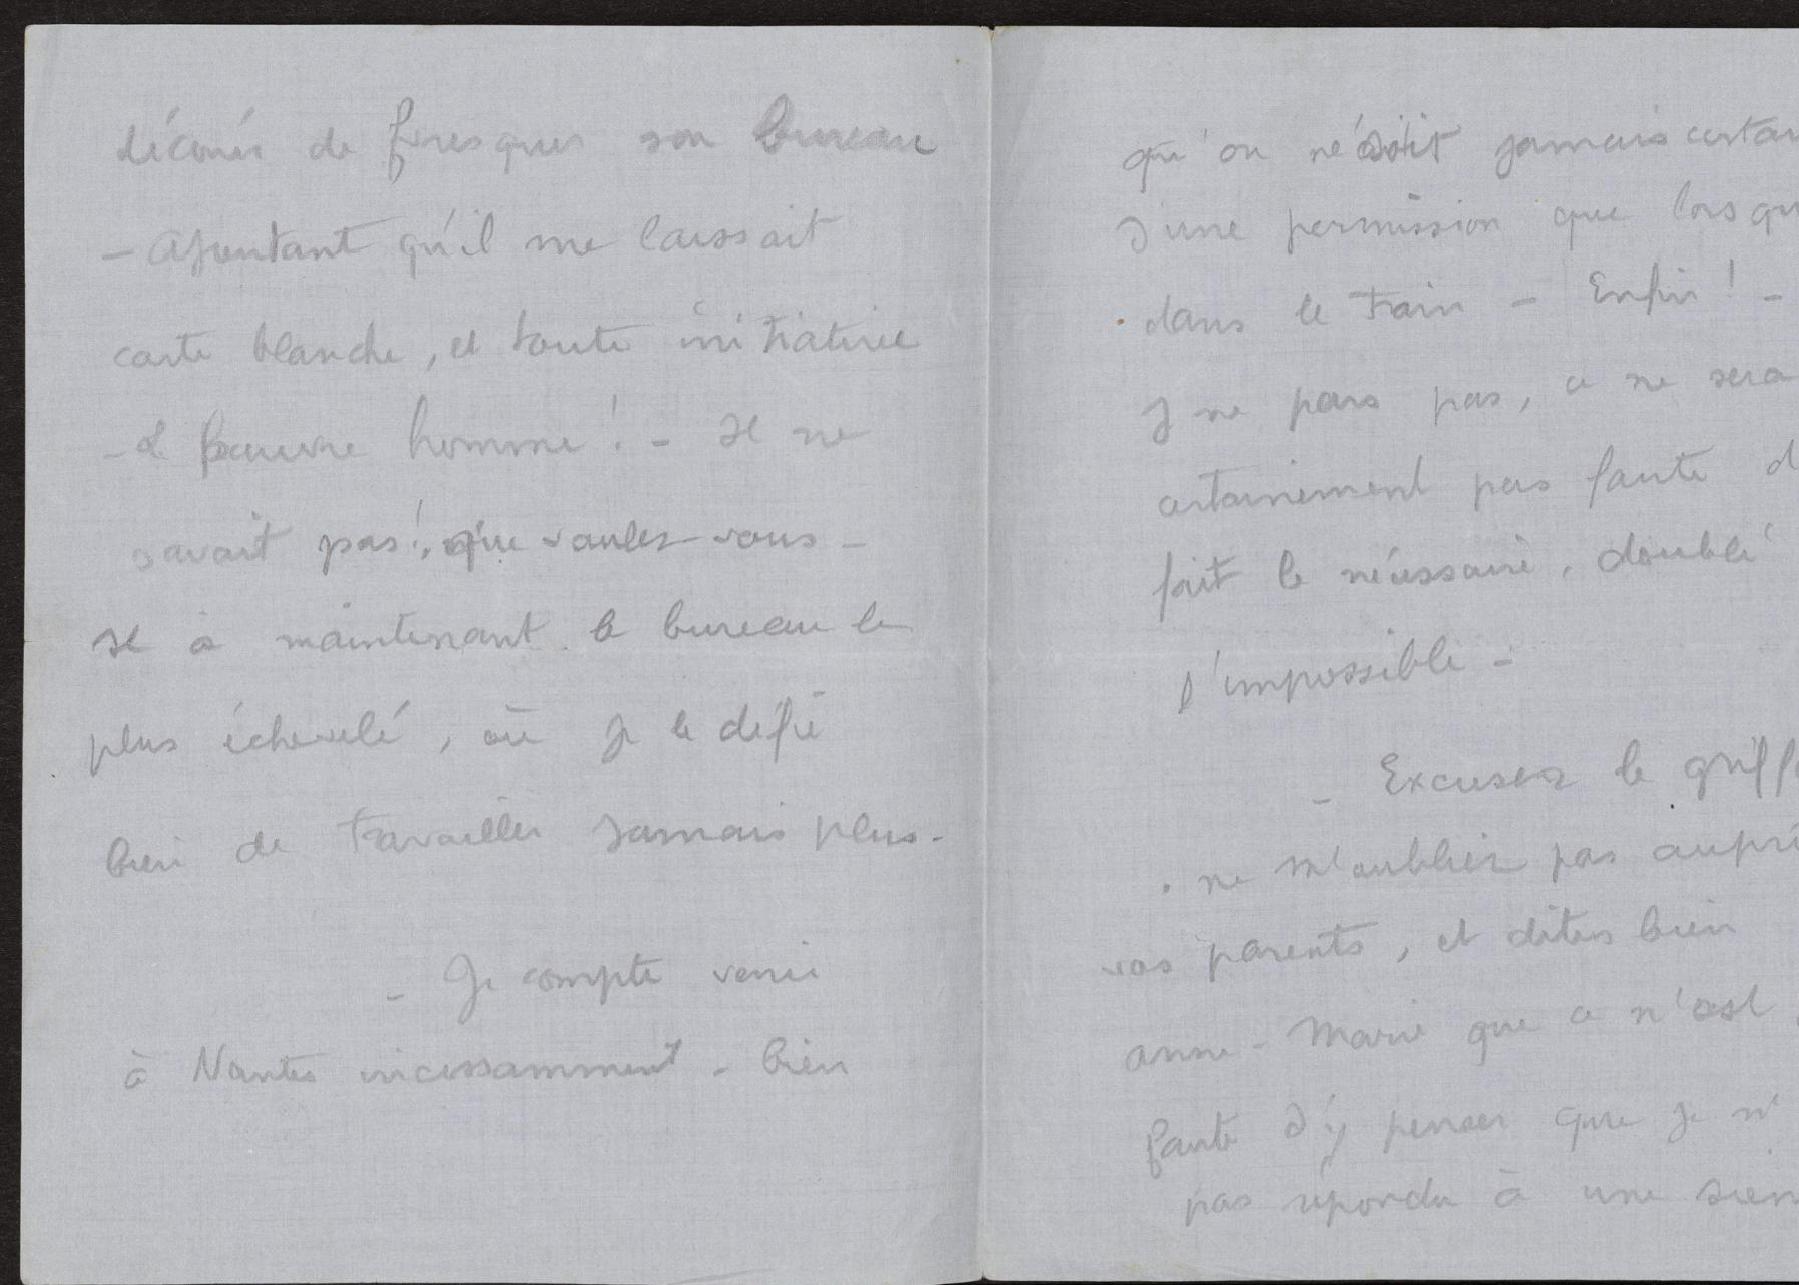 décorés de fresques son bureau
- Ajoutant qu'il me laissait
carte blanche, et toute initiative
- Le pauvre homme ! - Il ne
savait pas !, que voulez-vous -
Il a maintenant le bureau le
plus échevelé, où je le défie
bien de travailler jamais plus -
- Je compte venir
à Nantes incessamment - bien
qu'on ne soit jamais certai
d'une permission que lorsqu
dans le train - Enfin ! -
Je ne pars pas, ce ne sera
certainement pas faute d
fait le nécessaire, doublé
d'impossible -
- Excusez le griff
. ne m'oubliez pas auprè
vos parents, et dites bien
anne-Marie que ce n'est
faute d'y penser que je n'
pas répondu à une sien